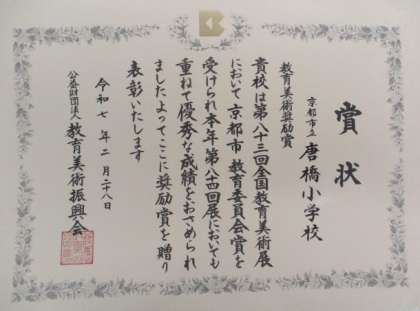 賞状
京都市立
唐橋小学校
教育美術奨励賞
貴校は第八十三回全国教育美術展
において京都市教育委員会賞を
受けられ本年第八四回展においても
重ねて優秀な成績をおさめられ
ましたよってここに奨励賞を贈り
表彰いたします
令和七年二月二十八日
公益財団法人
教育美術振興会